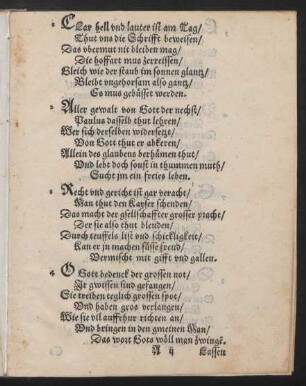 CLar hell vnd lauter ist am Tag/
Thut vns die Schrifft beweisen/
Das vbermut nit bleiben mag/
Die hoffart mus zerreissen/
Gleich wie der staub im sonnen glantz/
Bleibt vngehorsam also gantz/
Es mus gebüsset werden.
2 Aller gewalt von Gott der nechst/
Paulus dasselb thut lehren/
Wer sich derselben widersetzt/
Von Gott thut er abkeren/
Allein des glaubens berhümen thut/
Und lebt doch sonst in thummen muth/
Sucht jm ein freies leben.
3 Recht vnd gericht ist gar veracht/
Man thut den Kayser schenden/
Das macht der gsellschaffter grosser pracht/
Der sie also thut blenden/
Durch teuffels list vnd schickligkeit/
Kan er jn machen süsse freud/
Vermischt mit gifft vnd gallen.
4 O Gott bedenck der grossen not/
Jr gwissen sind gefangen/
Sie treiben teglich grossen spot/
Und haben gros verlangen/
Wie sie vil auffrhur richten an/
Und bringen in den gmeinen Man/
Das wort Gots wöll man zwingē.
A ij Lassen